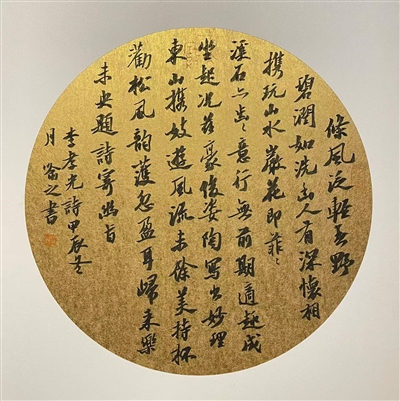 條風泛輕雲野
碧潤如洗幽人有深懷相
携玩山水巖花即菲〻
溪石亦齒〻意行無前期適趣成
坐起況茲豪俊姿陶寫出妙理
東山攜妓遊風流未餘美持杯
勸松風韻護忽盈耳歸來樂
未央題詩寄幽旨
李孝光詩甲辰冬
月之書